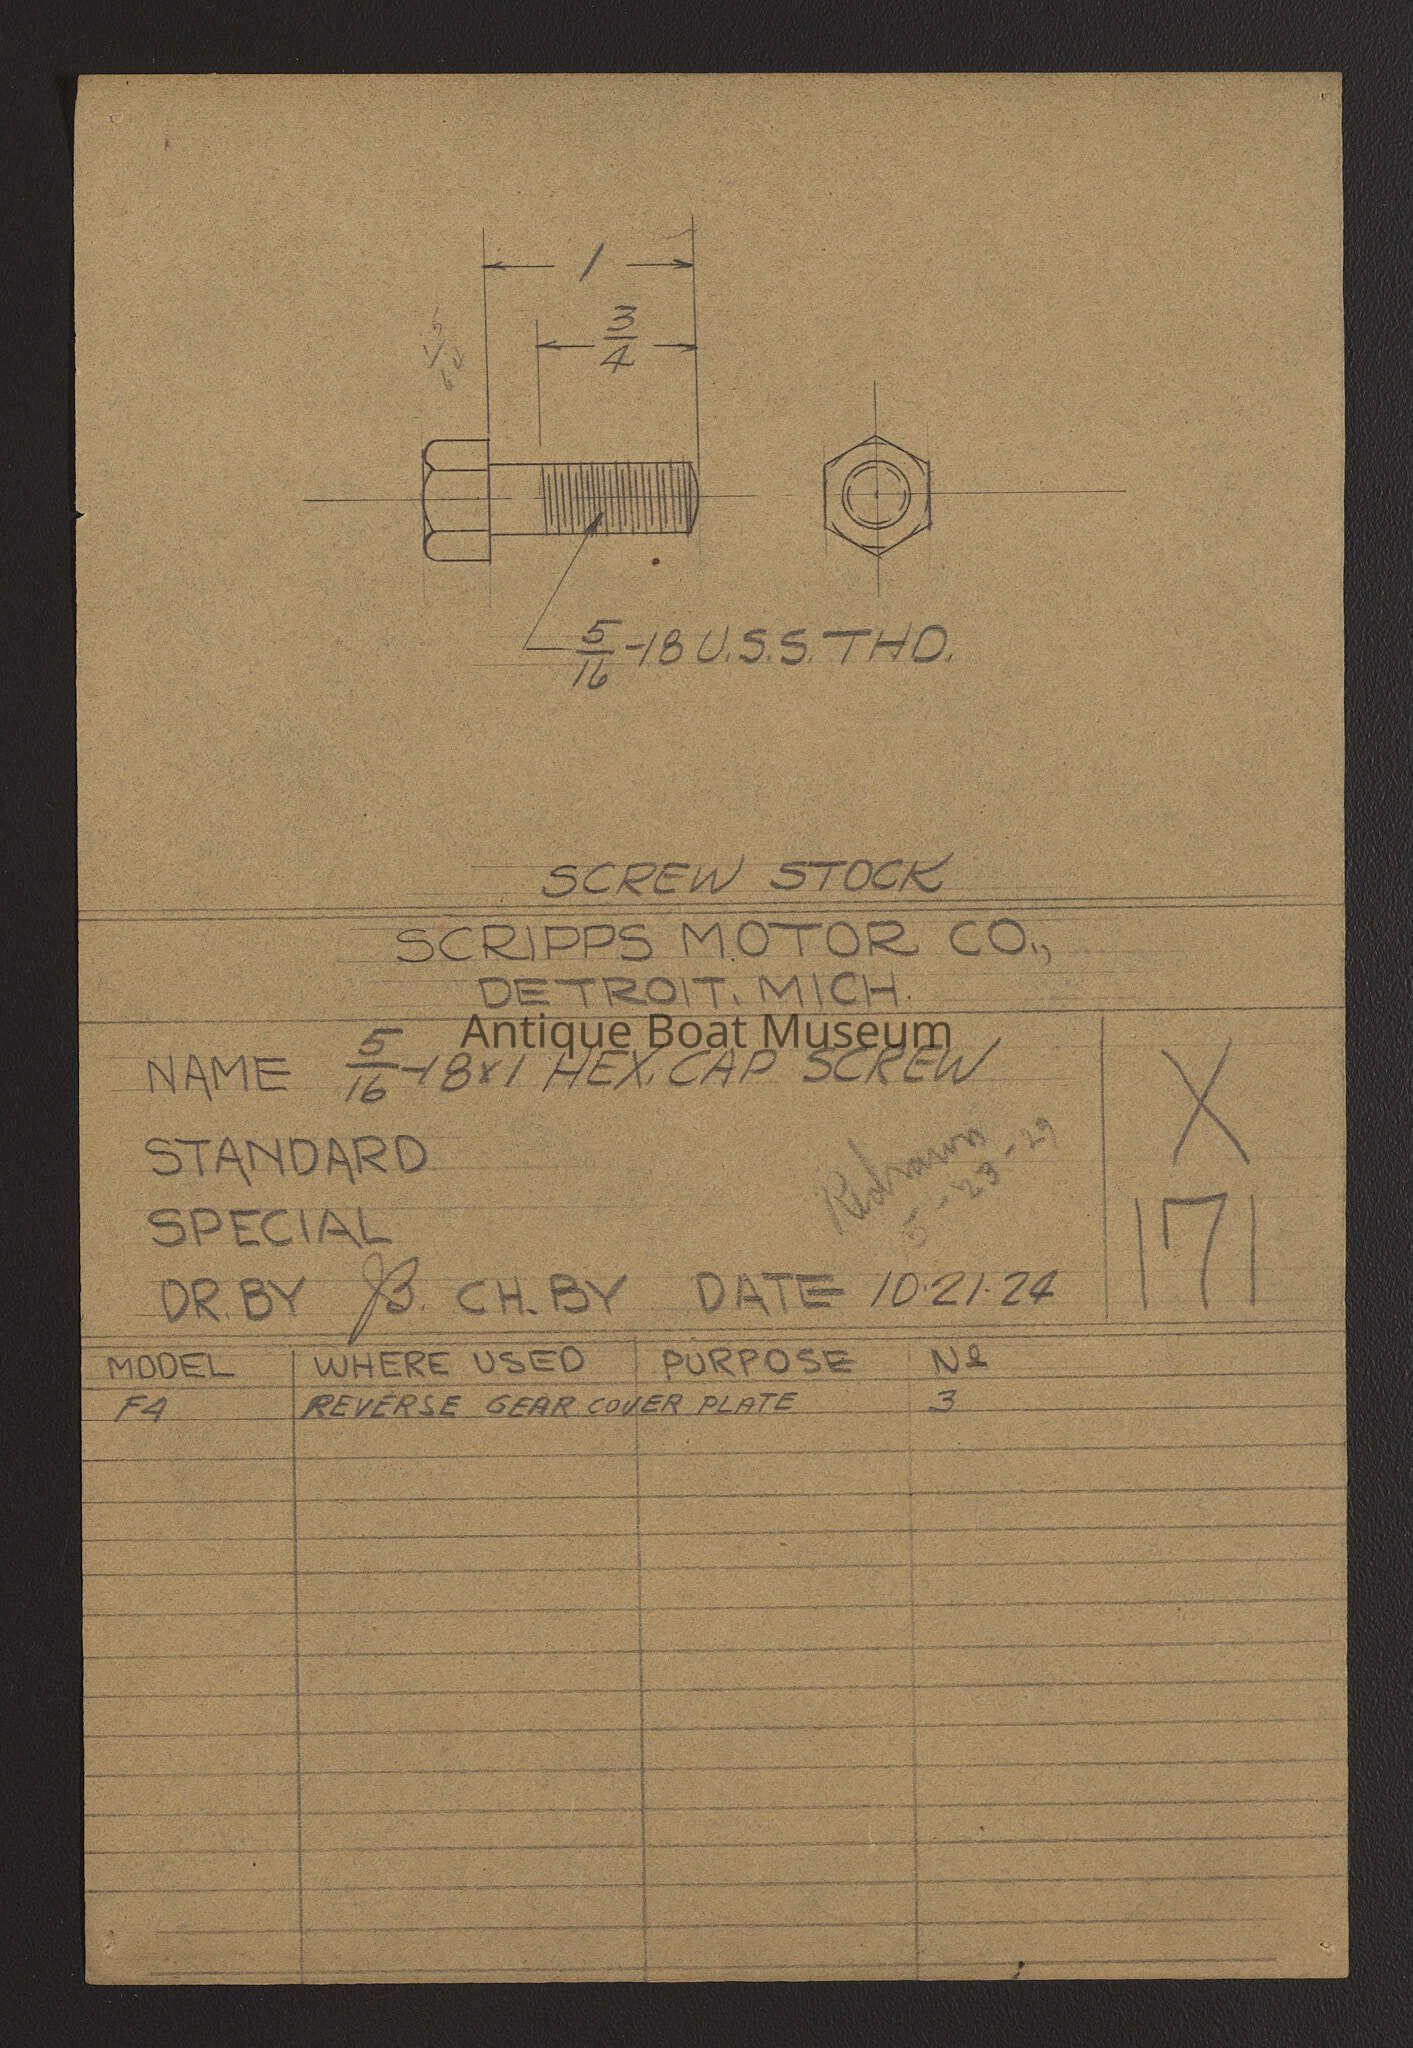 1
3/4
5/16-18 U.S.S. THD.
SCREW STOCK
SCRIPPS MOTOR CO.,
DETROIT, MICH.
Antique Boat Museum
NAME 5/16-18x1 HEX. CAP SCREW
X
STANDARD
Redrawn
5-23-29
SPECIAL
171
DR. BY JB. CH. BY DATE 10-21-24
MODEL WHERE USED PURPOSE No
F4 REVERSE GEAR COVER PLATE 3